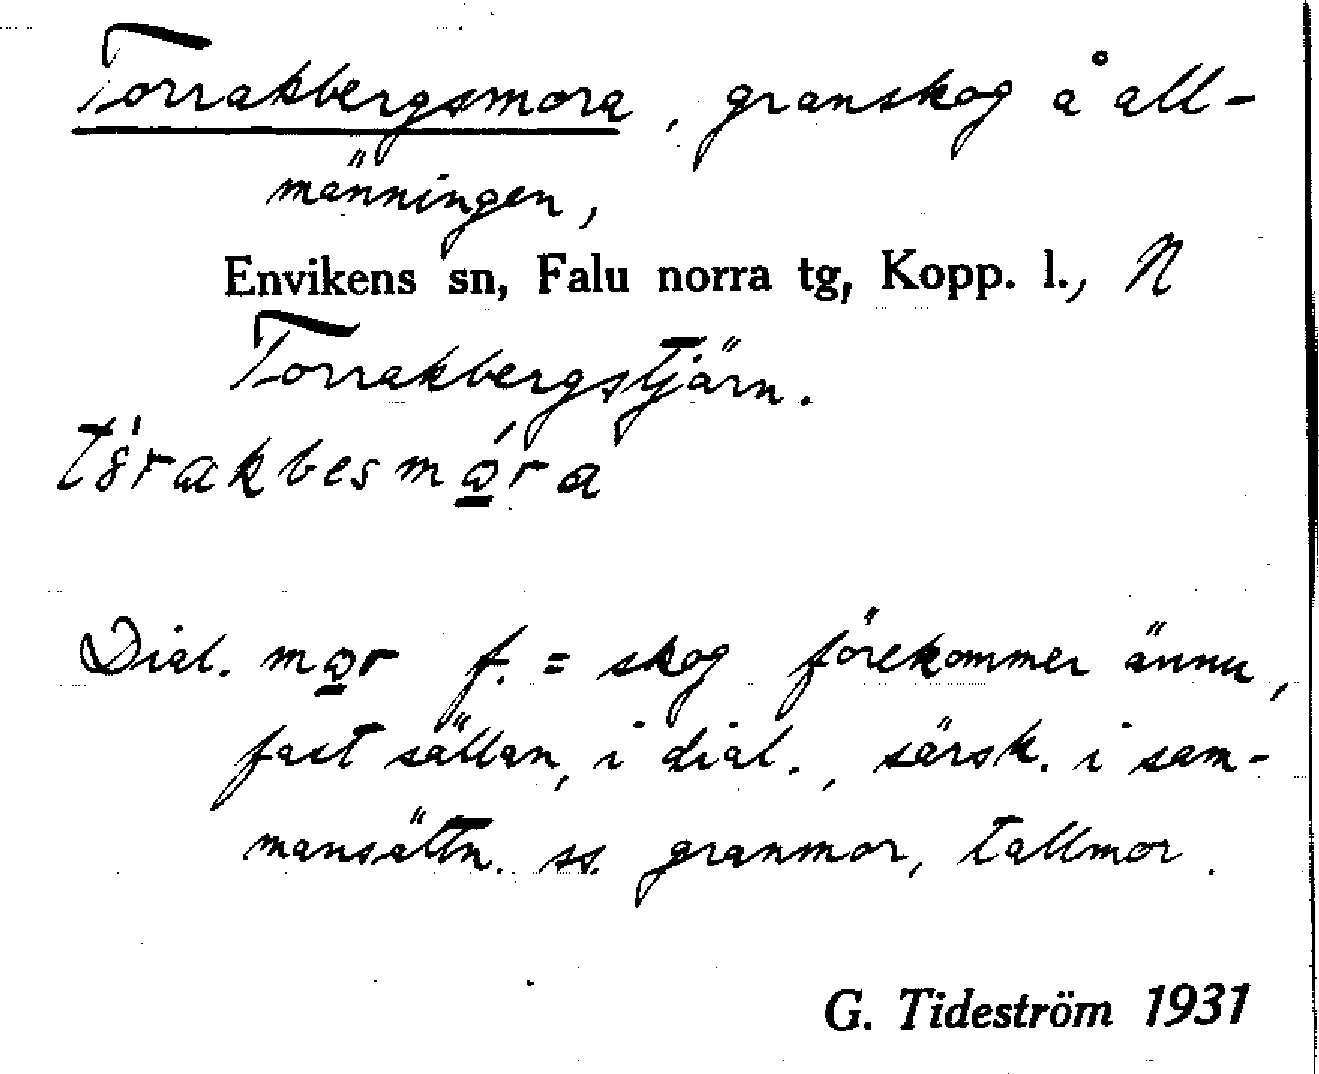 Torrakbergsmora, granskog å all-
männingen,
Envikens sn, Falu norra tg, Kopp. l., N
Torrakbergstjärn.
Dial. mo̲r f. = skog förekommer ännu,
fast sällan, i dial., särsk. i sam-
mansättn. ss. granmor, tallmor.
G. Tideström 1931